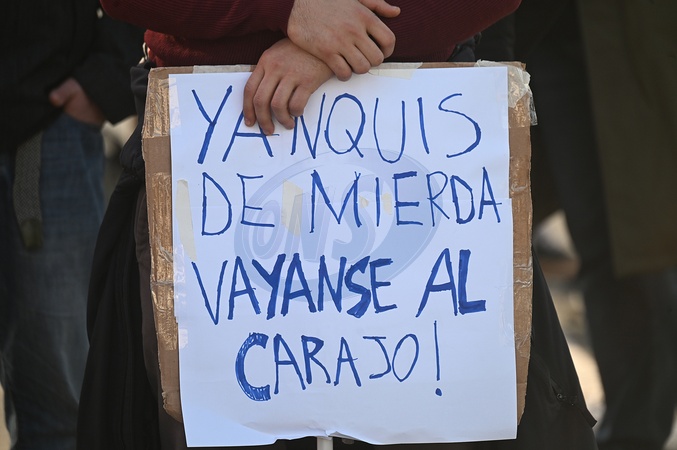 YANQUIS
DE MIERDA
VAYANSE AL
CARAJO!